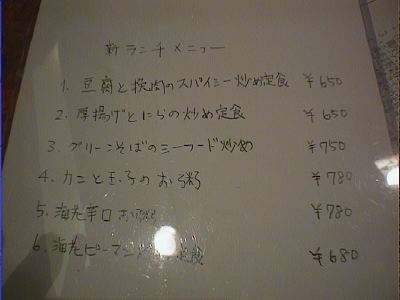 新ランチメニュー
1. 豆腐と挽肉のスパイシー炒め定食 ¥650
2. 厚揚げとにらの炒め定食 ¥650
3. グリーンそばのシーフード炒め ¥750
4. カニと玉子のお粥 ¥780
5. 海老辛口お粥 ¥780
6. 海老ピーマン 定食 ¥680